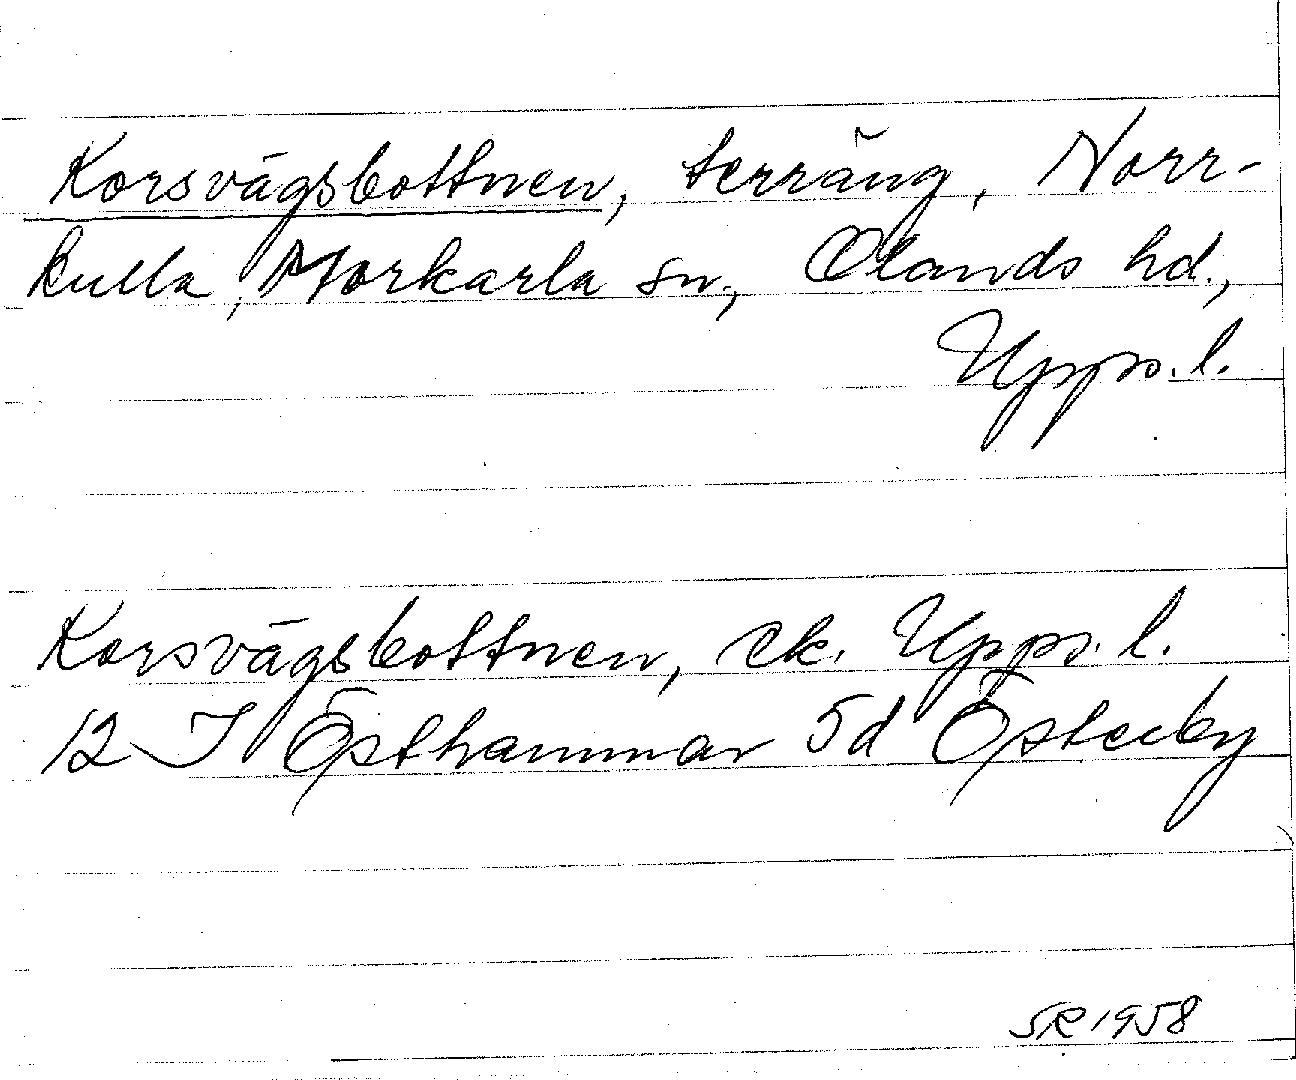 Korsvägsbottnen, terräng, Norr-
kulla, Morkarla sn., Olands hd.,
Upps. l.
Korsvägsbottnen, ek. Upps. l.
12 I Östhammar 5d Österby
SR 1958